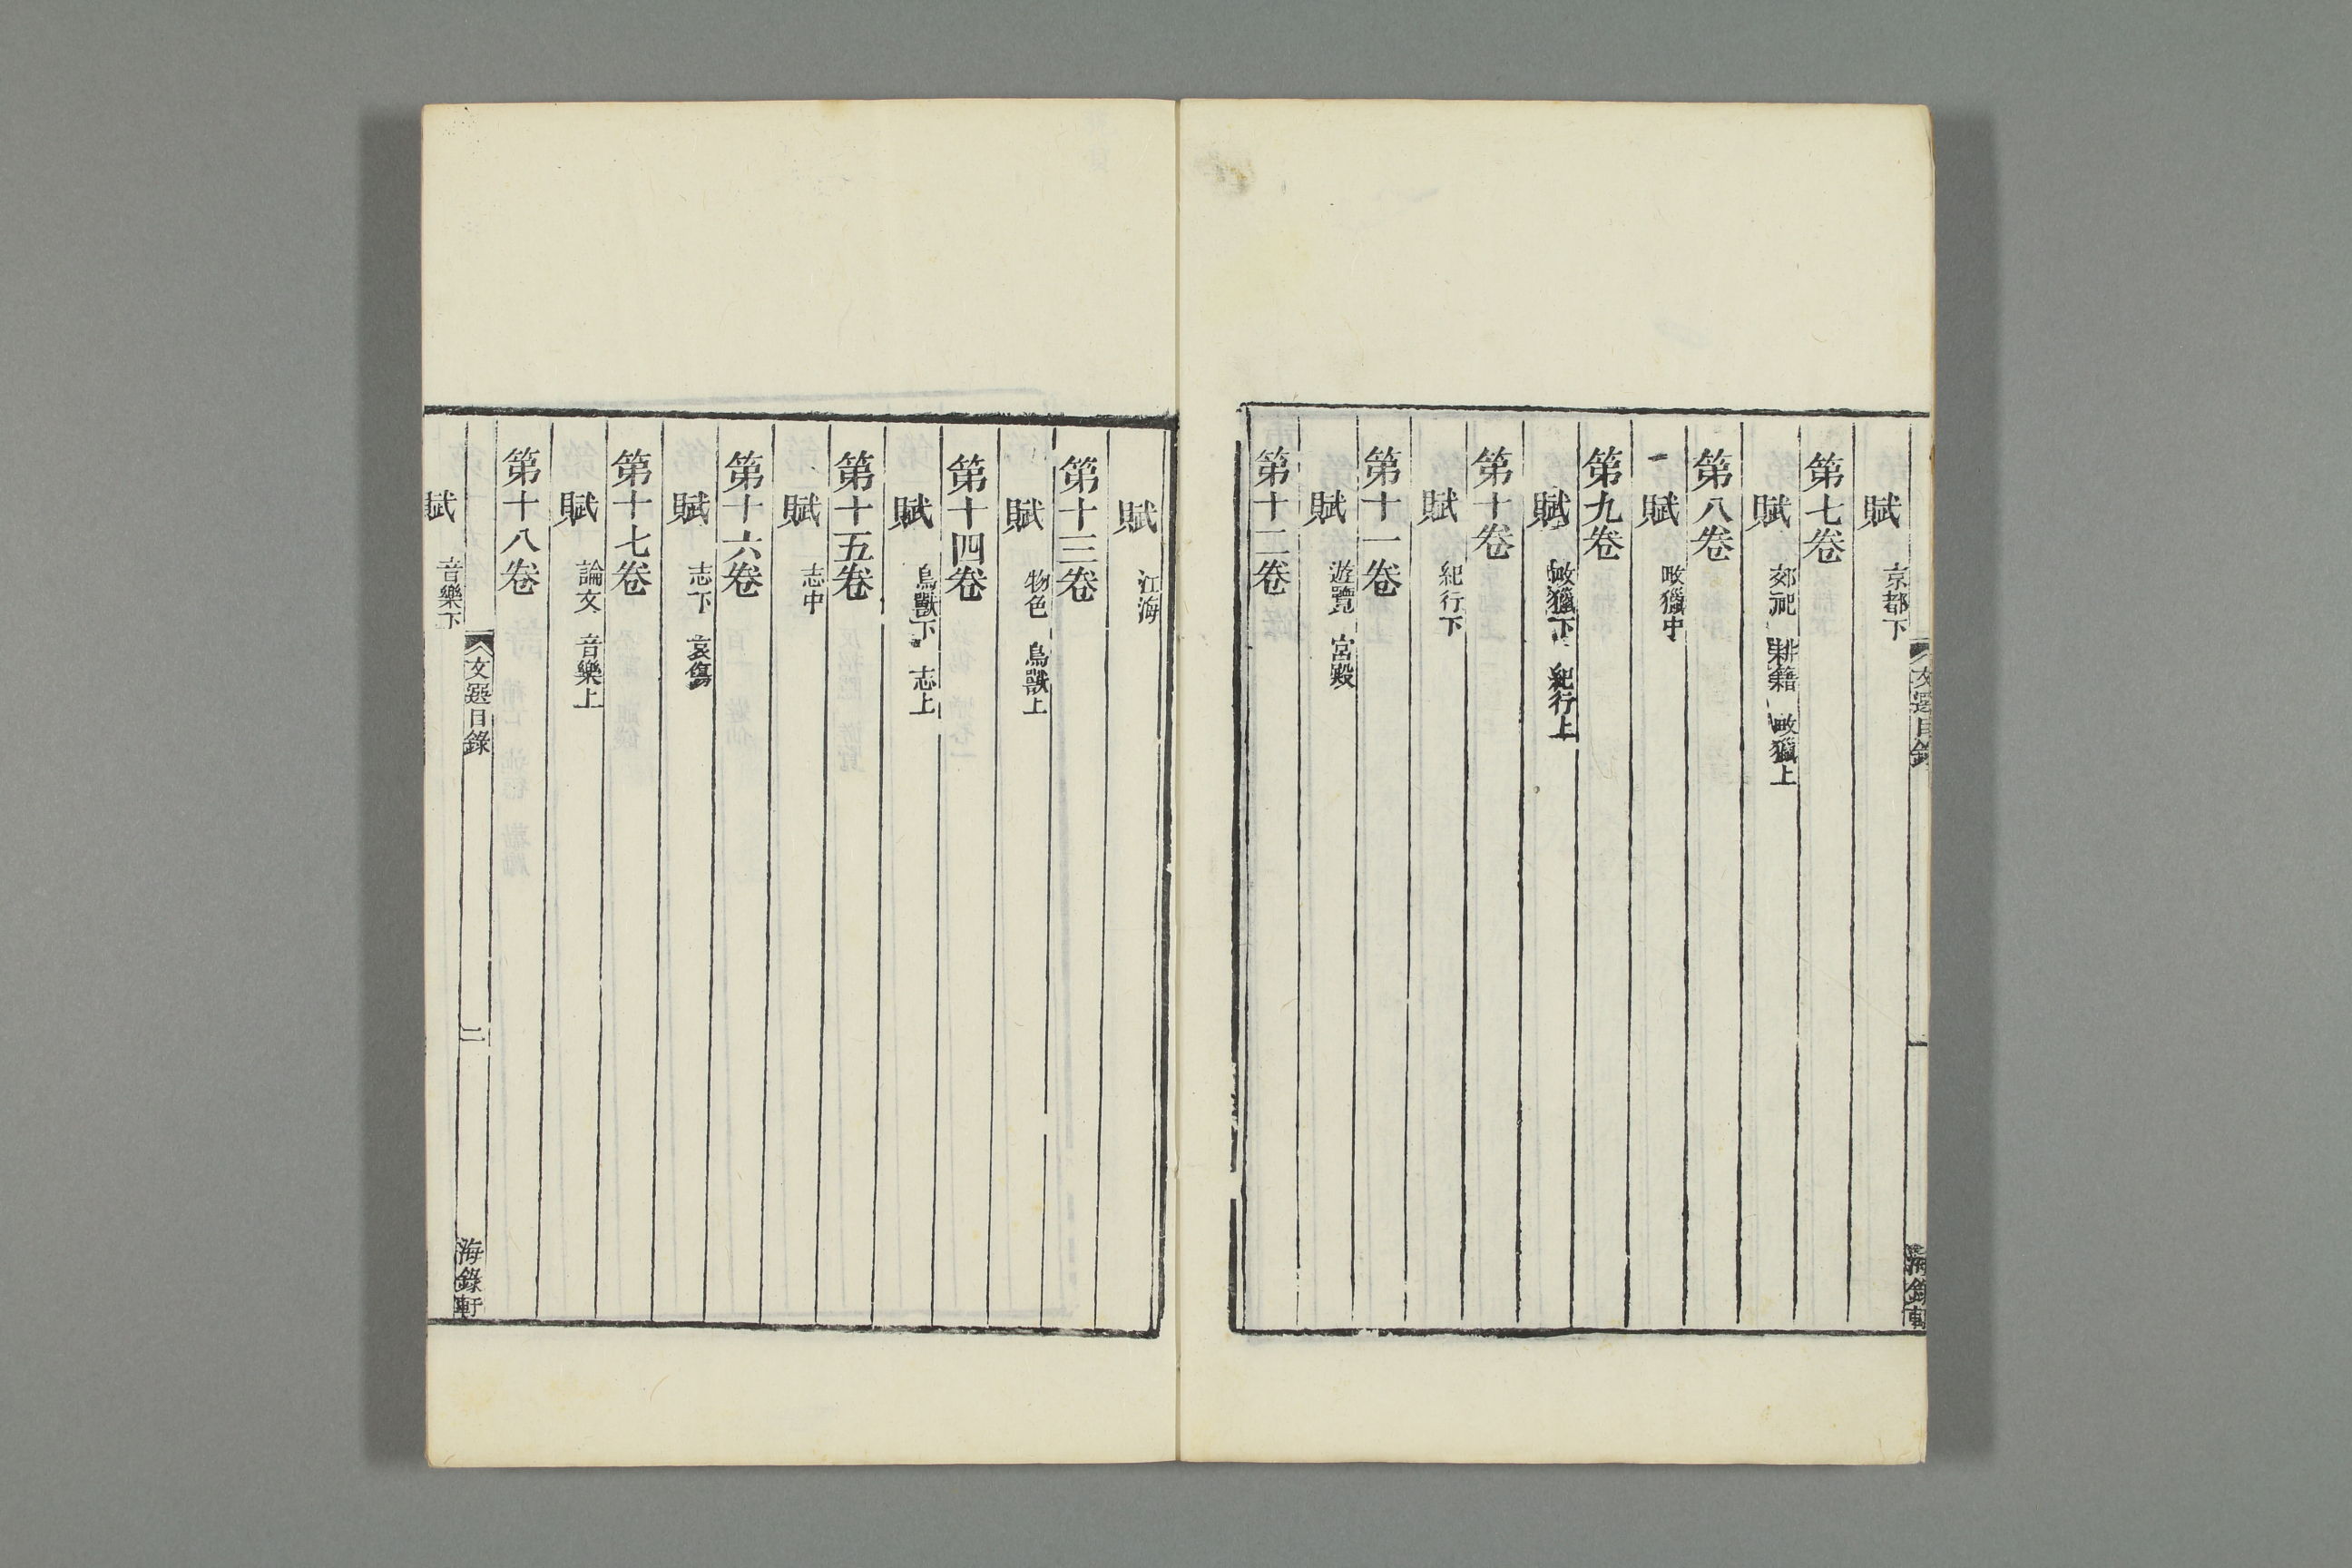 文選目錄
一
海錄軒
賦 京都下
第七卷
賦 郊祀 耕籍 畋獵上
第八卷
賦 畋獵中
第九卷
賦 畋獵下 紀行上
第十卷
賦 紀行下
第十一卷
賦 遊覽 宮殿
第十二卷
賦 江海
第十三卷
賦 物色 鳥獸上
第十四卷
賦 鳥獸下 志上
第十五卷
賦 志中
第十六卷
賦 志下 哀傷
第十七卷
賦 論文 音樂上
第十八卷
文選目錄
二
海錄軒
賦 音樂下